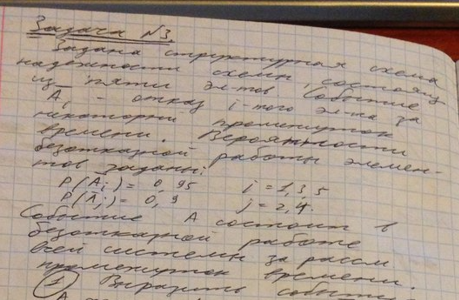 Задача №3.
Задана структурная схема
надежности схемы, состоящ
из пяти эл-тов Событие
Ai - отказ i-того эл-та за
некоторый промежуток
времени. Вероятности
безотказной работы элемен-
тов заданы:
P(Āi) = 0,95 i = 1,3,5
P(Āj) = 0,9 j = 2,4.
Событие A состоит в
безотказной работе
всей системы за рассм
промежуток времени.
1 Выразить событие